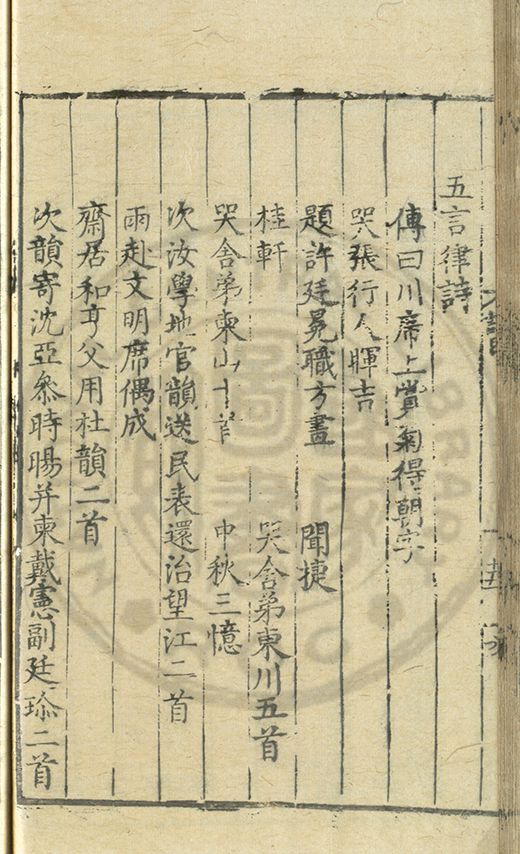 五言律詩
傅曰川席上賞菊得朝字
哭張行人暉吉
題許廷冕職方畫 聞捷
桂軒 哭舍弟東川五首
哭舍弟東山十首 中秋三憶
次汝學地官韻送民表還治望江二首
雨赴文明席偶成
齋居和亨父用杜韻二首
次韻寄沈亞參時暘并柬戴憲副廷珍二首